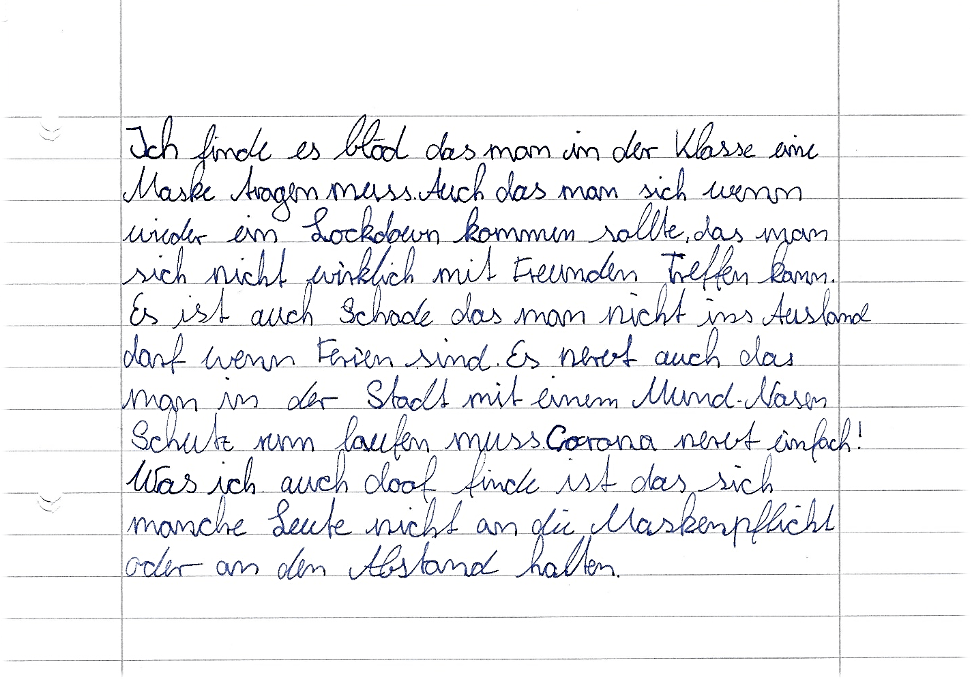 Ich finde es blöd das man in der Klasse eine
Maske tragen muss. Auch das man sich wenn
wieder ein Lockdown kommen sollte, das man
sich nicht wirklich mit Freunden Treffen kann.
Es ist auch Schade das man nicht ins Ausland
darf wenn Ferien sind. Es nervt auch das
man in der Stadt mit einem Mund-Nasen
Schutz rum laufen muss. Corona nervt einfach!
Was ich auch doof finde ist das sich
manche Leute nicht an die Maskenpflicht
oder an den Abstand halten.